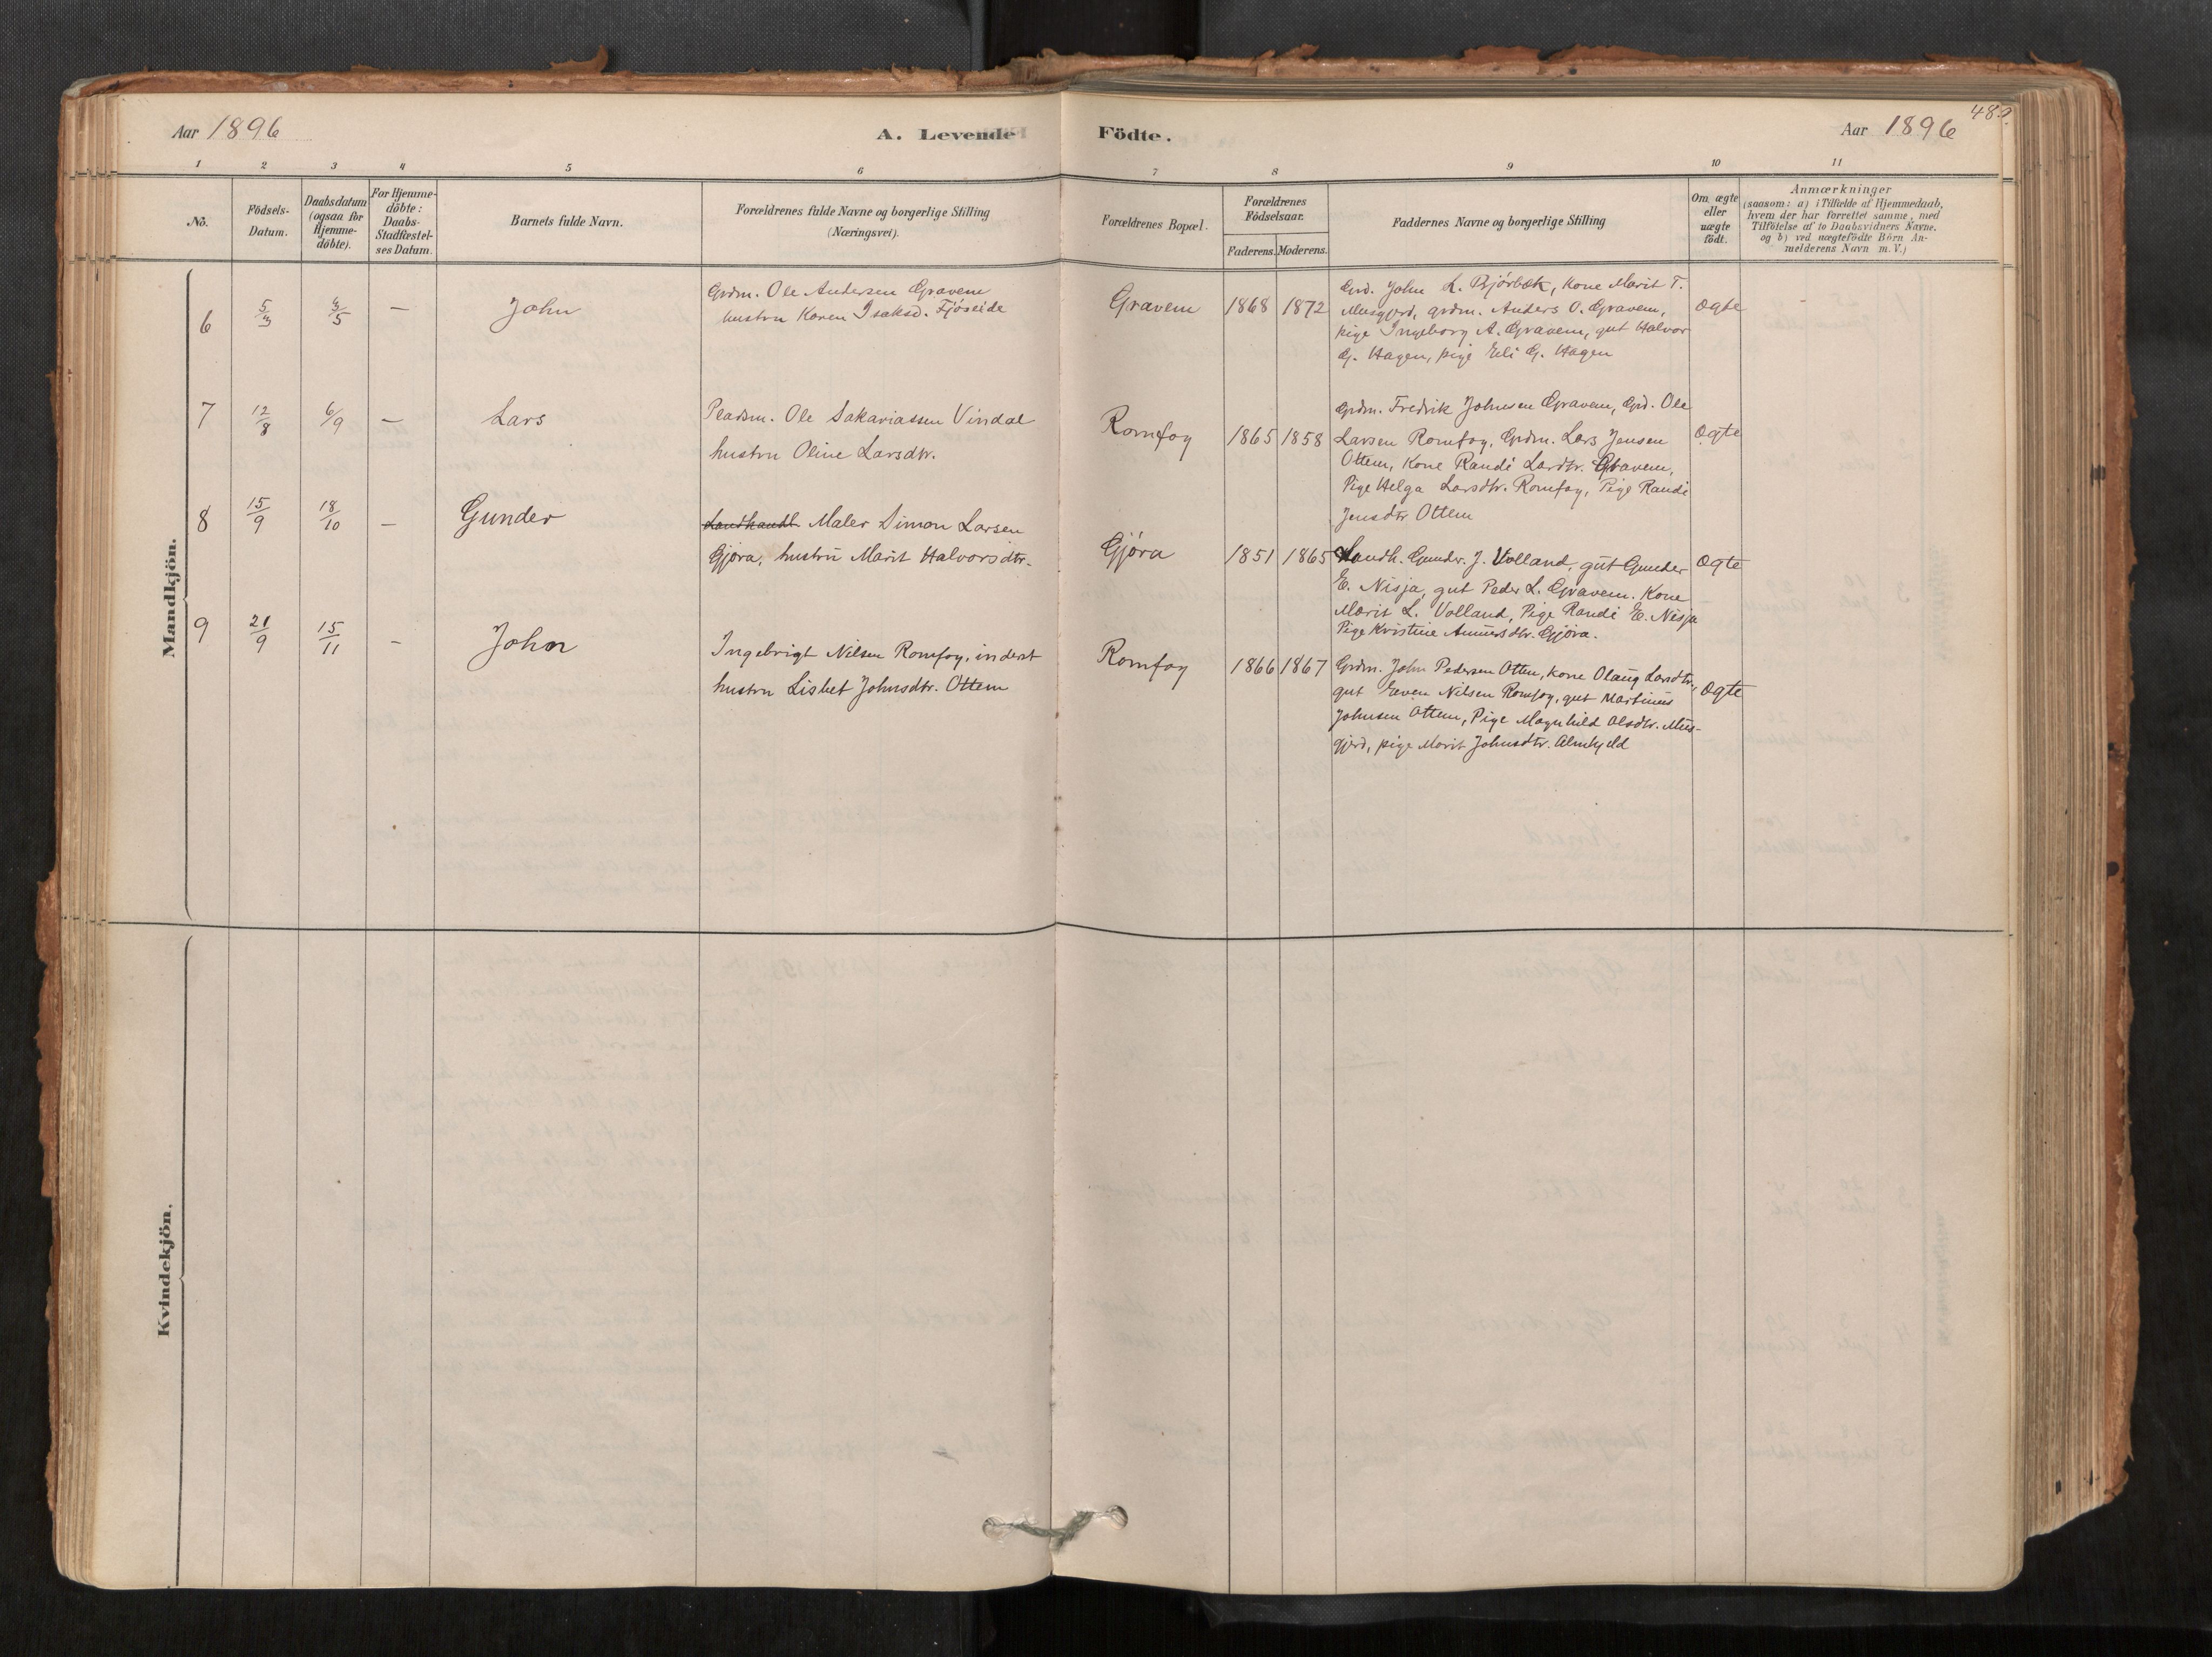 Aar 1896
A. Levende Födte.
Aar 1896
48
1 2 3 4 5 6 7 8 9 10 11
No.
Födsels-Datum.
Daabsdatum (ogsaa for Hjemme-döbte).
For Hjemme-döbte: Daabs-Stadfæstel-ses Datum.
Barnets fulde Navn.
Forældrenes fulde Navne og borgerlige Stilling (Næringsvei).
Forældrenes Bopæl.
Forældrenes Födselsaar.
Faderens. Moderens.
Faddernes Navne og borgerlige Stilling
Om ægte eller uægte födt.
Anmærkninger
(saasom: a) i Tilfælde af Hjemmedaab,
hvem der har forrettet samme, med
Tilföielse af to Daabsvidners Navne.
og b) ved uægtefödte Börn An-
melderens Navn m.V.)
Mandkjön.
6 5/3 3/5 — John
Grdm. Ole Andersen Gravem
hustru Karen Isaksd. Fjöseide
Gravem 1868 1872
Grd. John L. Bjørbæk, Kone Marit T.
Musgjerd, grdm. Anders O. Gravem,
pige Ingeborg A. Gravem, gut Halvor
G. Hagen, pige Eli G. Hagen
Ægte
7 12/8 6/9 — Lars
Pladsm. Ole Sakariassen Vindal
hustru Oline Larsdtr.
Romfog 1865 1858
Grdm. Fredrik Johnsen Gravem, Grd. Ole
Larsen Romfog, Grdm. Lars Jensen
Ottem, Kone Randi Lardtr. Gravem,
Pige Helga Larsdtr. Romfog, Pige Randi
Jensdtr Ottem
Ægte
8 15/9 18/10 — Gunder
Landhandl Maler Simon Larsen
Gjøra, hustru Marit Halvorsdtr.
Gjøra 1851 1865
Landh. Gunder. J. Volland, gut Gunder
E. Nisja, gut Peder L. Gravem. Kone
Marit L. Volland, Pige Randi E. Nisja
Pige Kristine Gjøra.
Ægte
9 21/9 15/11 - John
Ingebrigt Nilsen Romfog, inderst
hustru Lisbet Johnsdtr. Ottem
Romfog 1866 1867
Grdm. John Pedersen Otten, Kone Olaug Larsdtr,
gut Even Nilsen Romfog, gut Martinus
Johnsen Ottem, Pige Magnhild Olsdtr. Mus-
gjerd, pige Marit Johnsdtr. Almskjeld
Ægte
Kvindekjön.